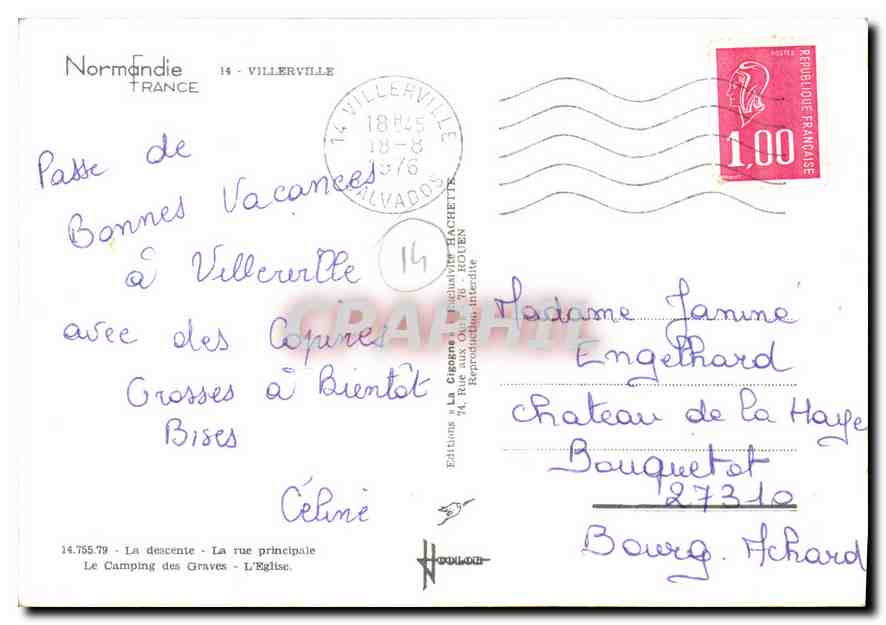 Normandie
FRANCE
14 - VILLERVILLE
14 VILLERVILLE
18H45
18-8
1976
CALVADOS
POSTES
REPUBLIQUE FRANÇAISE
1,00
Passe de
Bonnes Vacances
à Villerville
avec des Copines
Grosses à Bientôt
Bises
Céline
14
14.755.79 - La descente - La rue principale
Le Camping des Graves - L'Eglise.
Editions « La Cigogne » Exclusivité HACHETTE
74, Rue aux Ours, 76 - ROUEN
Reproduction interdite
HCOLOR
CPARAMA
Madame Janine
Engelhard
Chateau de la Haye
Bouquetot
27310
Bourg-Achard